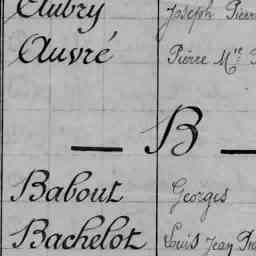 Aubry Joseph Pierr
Auvré Pierre Mie
B
Babout Georges
Bachelot Louis Jean